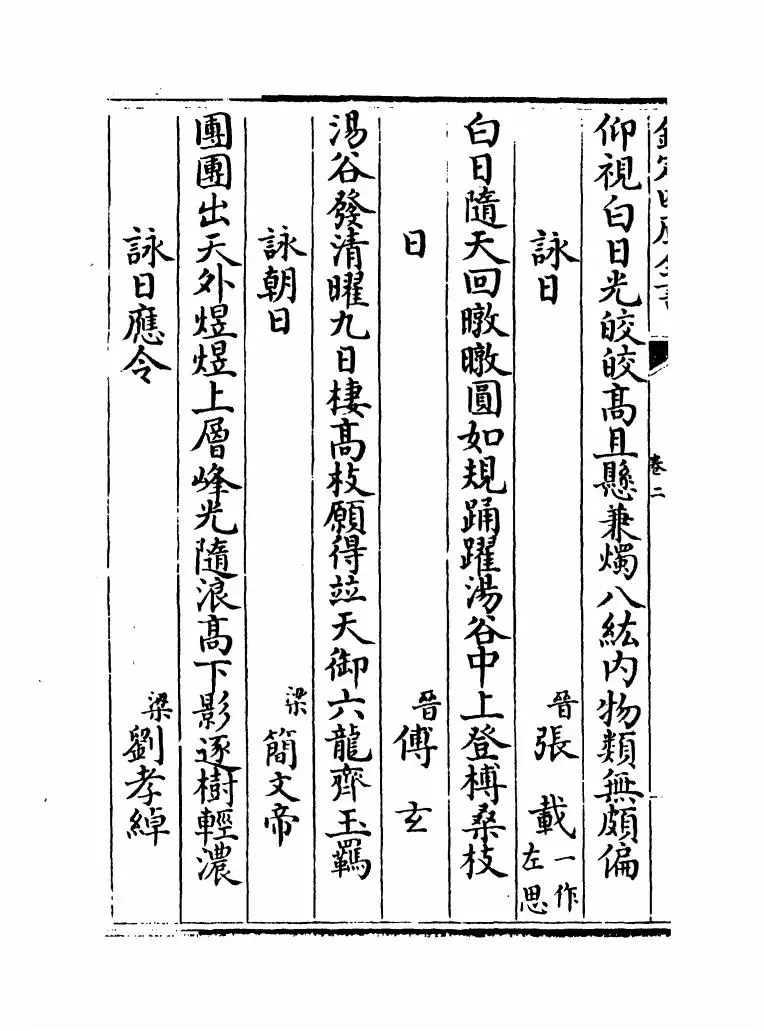 欽定四庫全書 卷二
仰視白日光皎皎髙且懸兼燭八紘内物類無頗偏
詠日 晉 張載 一作左思
白日隨天回暾暾圓如規踊躍湯谷中上登榑桑枝
日 晉 傅玄
湯谷發清曜九日棲髙枝願得竝天御六龍齊玉羈
詠朝日 梁 簡文帝
團團出天外煜煜上層峰光隨浪髙下影逐樹輕濃
詠日應令 梁 劉孝綽